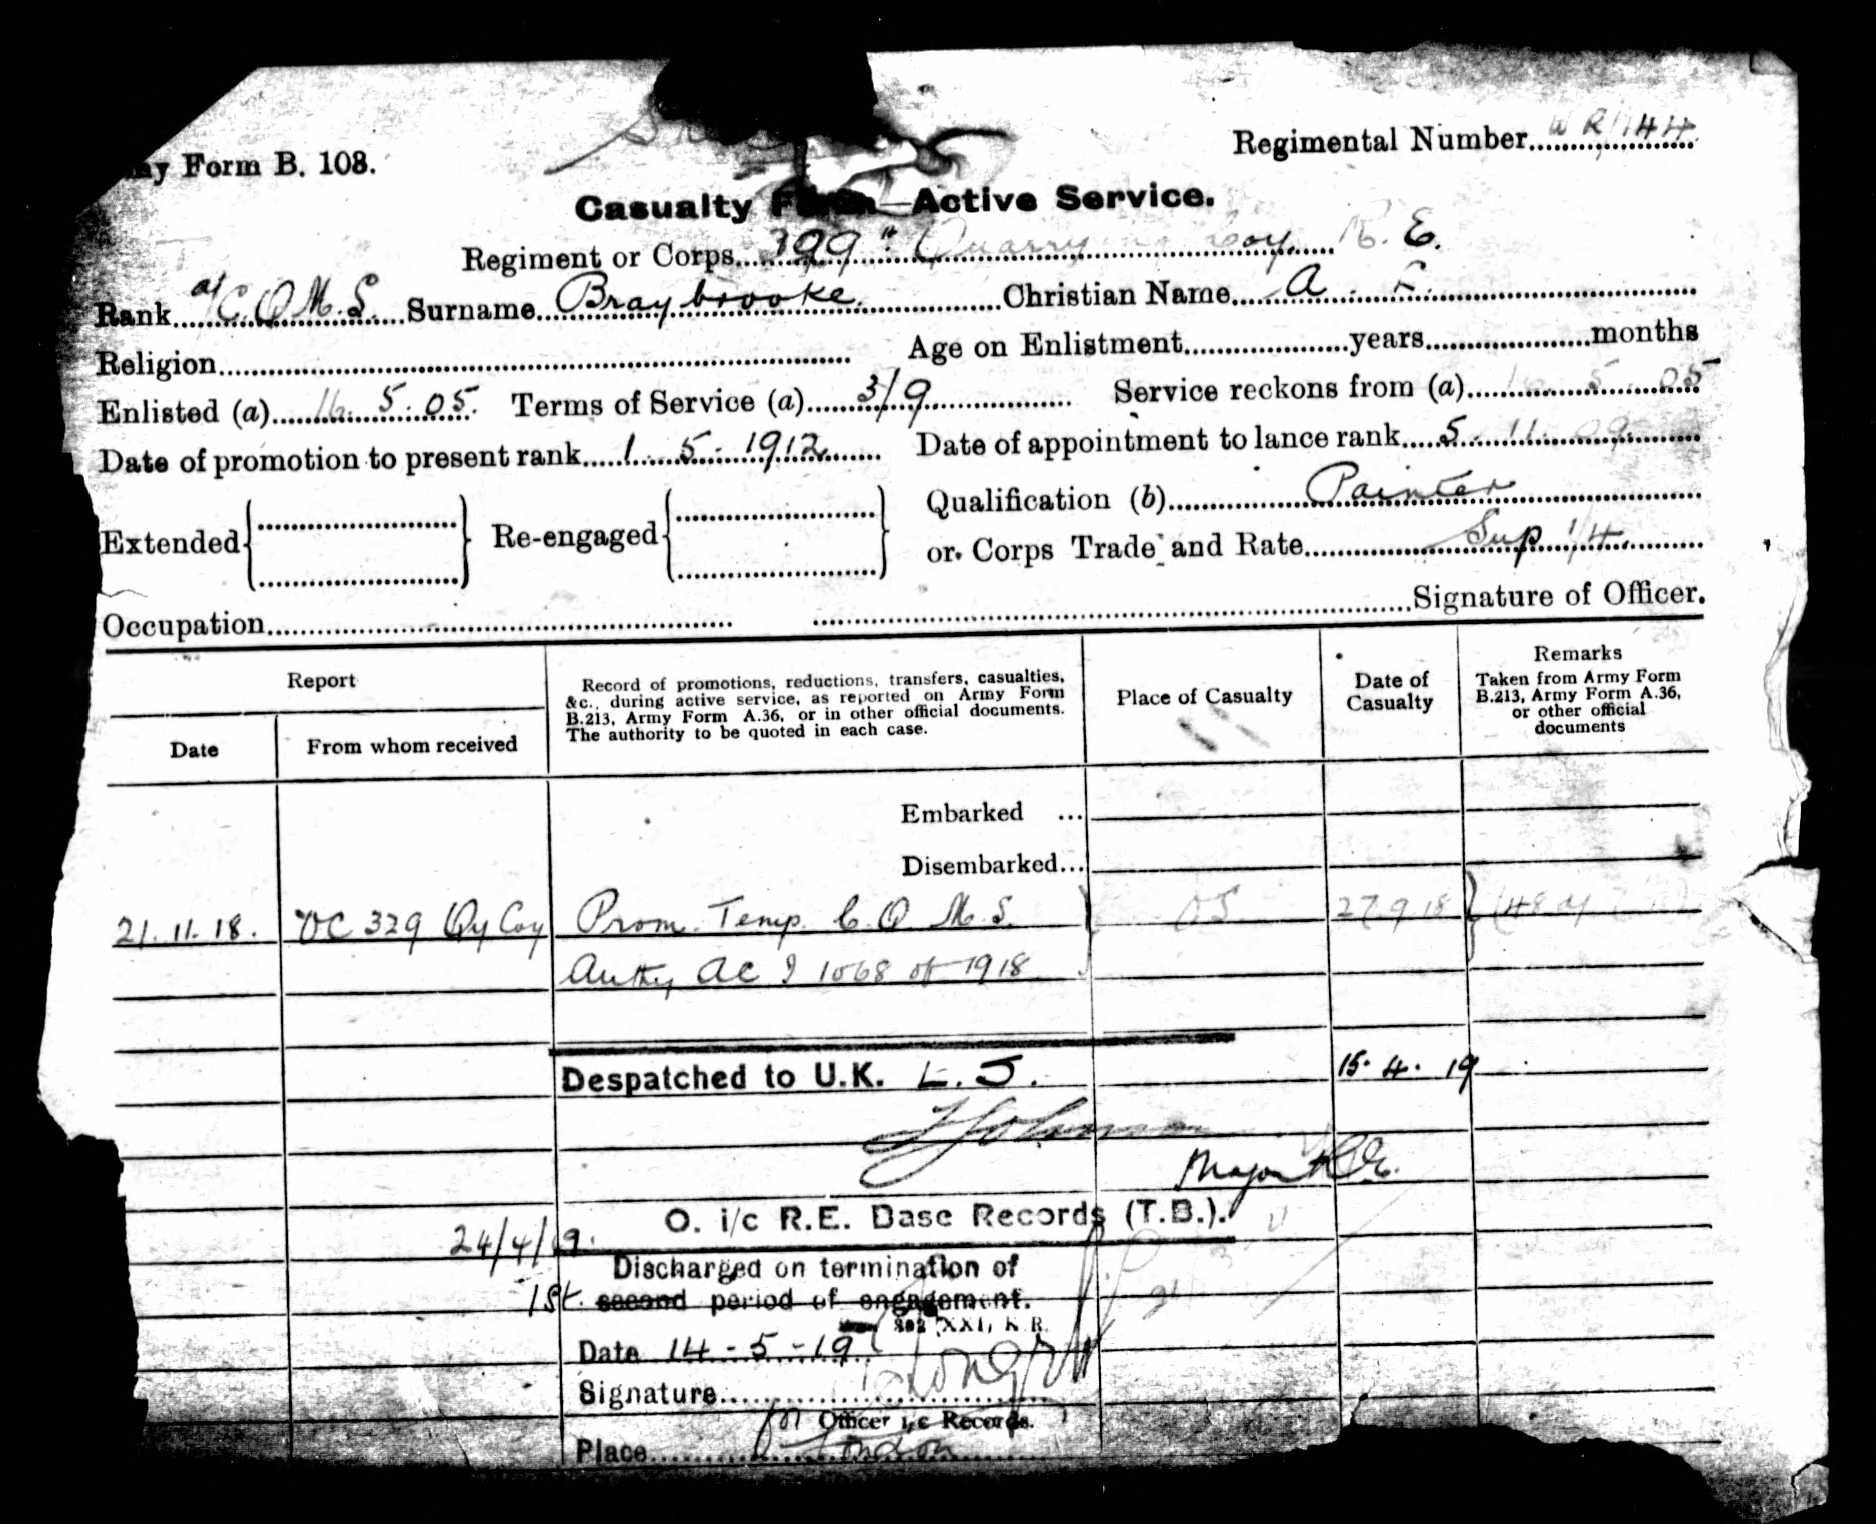 ny Form B. 103.
Regimental Number WR/1144
Casualty Form—Active Service.
Regiment or Corps 329th Quarrying Coy. R.E.
Rank a/C.Q.M.S. Surname Braybrooke Christian Name A.
Religion Age on Enlistment years months
Enlisted (a) 16.5.05. Terms of Service (a) 3/9 Service reckons from (a) 16.5.05
Date of promotion to present rank 1.5.1912 Date of appointment to lance rank 5.11.09
Extended Re-engaged Qualification (b) Painter
or Corps Trade and Rate Sup 1/4
Occupation Signature of Officer.
Report
Date
From whom received
Record of promotions, reductions, transfers, casualties,
&c., during active service, as reported on Army Form
B.213, Army Form A.36, or in other official documents.
The authority to be quoted in each case.
Place of Casualty
Date of
Casualty
Remarks
Taken from Army Form
B.213, Army Form A.36,
or other official
documents
Embarked ...
Disembarked...
21.11.18. OC 329 Qy Coy Prom. Temp. C.Q.M.S. 27 9 18
Authy ACI 1068 of 1918
Despatched to U.K. L.J. 15.4.19
Major R.E.
O. i/c R.E. Base Records (T.B.).
24/4/19.
Discharged on termination of
1st. second period of engagement.
392 XXI, K.R.
Date 14-5-19
Signature
for Officer i/c Records.
Place London